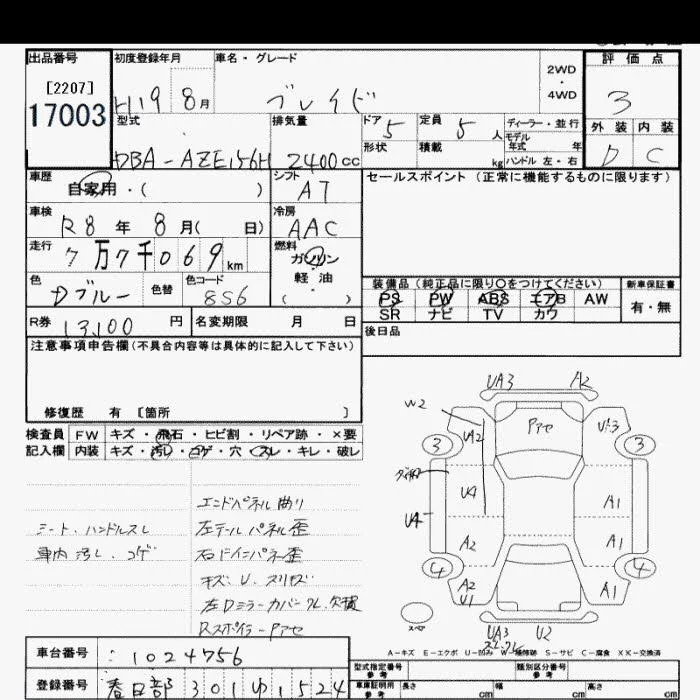 出品番号 初度登録年月 車名・グレード 2WD・4WD 評価点
[2207]
17003 H19 8月 ブレイド 3
型式 排気量 ドア 5 定員 5人 ディーラー・並行 外装 内装
DBA-AZE156H 2400cc 形状 積載 kg モデル年式 年 ハンドル 左・右 D C
車歴 自家用・( ) シフト AT セールスポイント (正常に機能するものに限ります)
車検 R8年 8月( 日) 冷房 AAC
走行 7万7千069km 燃料 ガソリン 軽・油 ( )
色 Dブルー 色替 色コード 8S6 装備品 (純正品に限り○をつけてください) 新車保証書
PS PW ABS エアB AW 有・無
SR ナビ TV カワ
R券 13,100円 名変期限 月 日 後日品
注意事項申告欄 (不具合内容等は具体的に記入して下さい)
修復歴 有 [箇所 ]
検査員 FW キズ・飛石・ヒビ割・リペア跡・×要
記入欄 内装 キズ・汚レ・コゲ・穴・スレ・キレ・破レ
シート、ハンドルスレ
車内汚レ、コゲ
エンドパネル曲り
左テールパネル歪
キズ、U、スリキズ
Rスポイラーアセ
UA3 A2
W2 UA2 Pアセ
3 3
U4 A1
U4
A2 A1
4 A2 U1 A1 4
スペア UA3 U2
A-キズ E-エクボ U-凹み W-補修跡 S-サビ C-腐食 XX-交換済
車台番号 1024756
登録番号 春日部 301 ゆ 1524
型式指定番号 参考 類別区分番号 参考
車庫証明用 参考 長さ cm 幅 cm 高さ cm